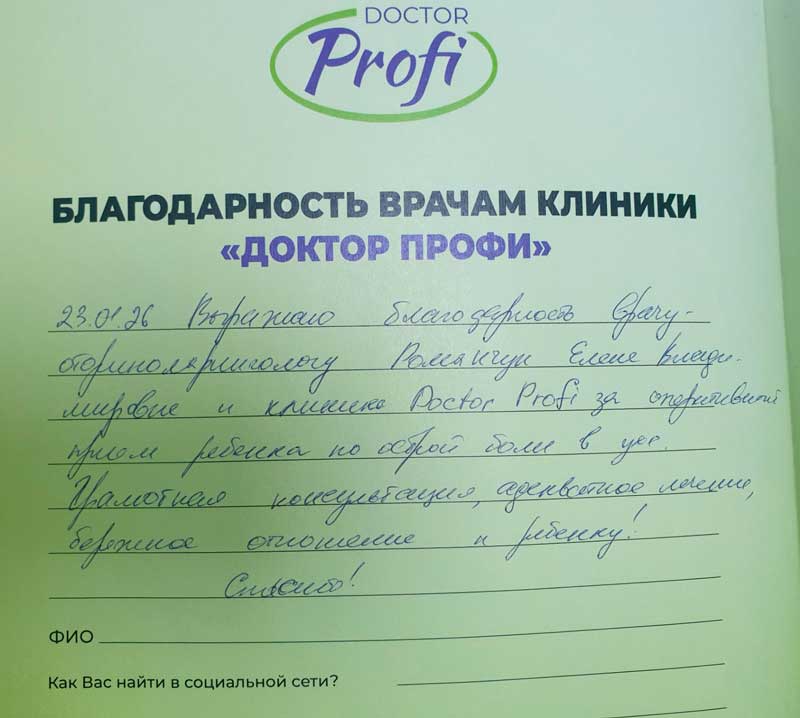 DOCTOR
Profi
БЛАГОДАРНОСТЬ ВРАЧАМ КЛИНИКИ
«ДОКТОР ПРОФИ»
23.01.26 Выражаю благодарность врачу-
оториноларингологу Романчук Елене Влади-
мировне и клинике Doctor Profi за оперативный
прием ребенка по острой боли в ухе.
Грамотная консультация, адекватное лечение,
бережное отношение к ребенку!
Спасибо!
ФИО
Как Вас найти в социальной сети?